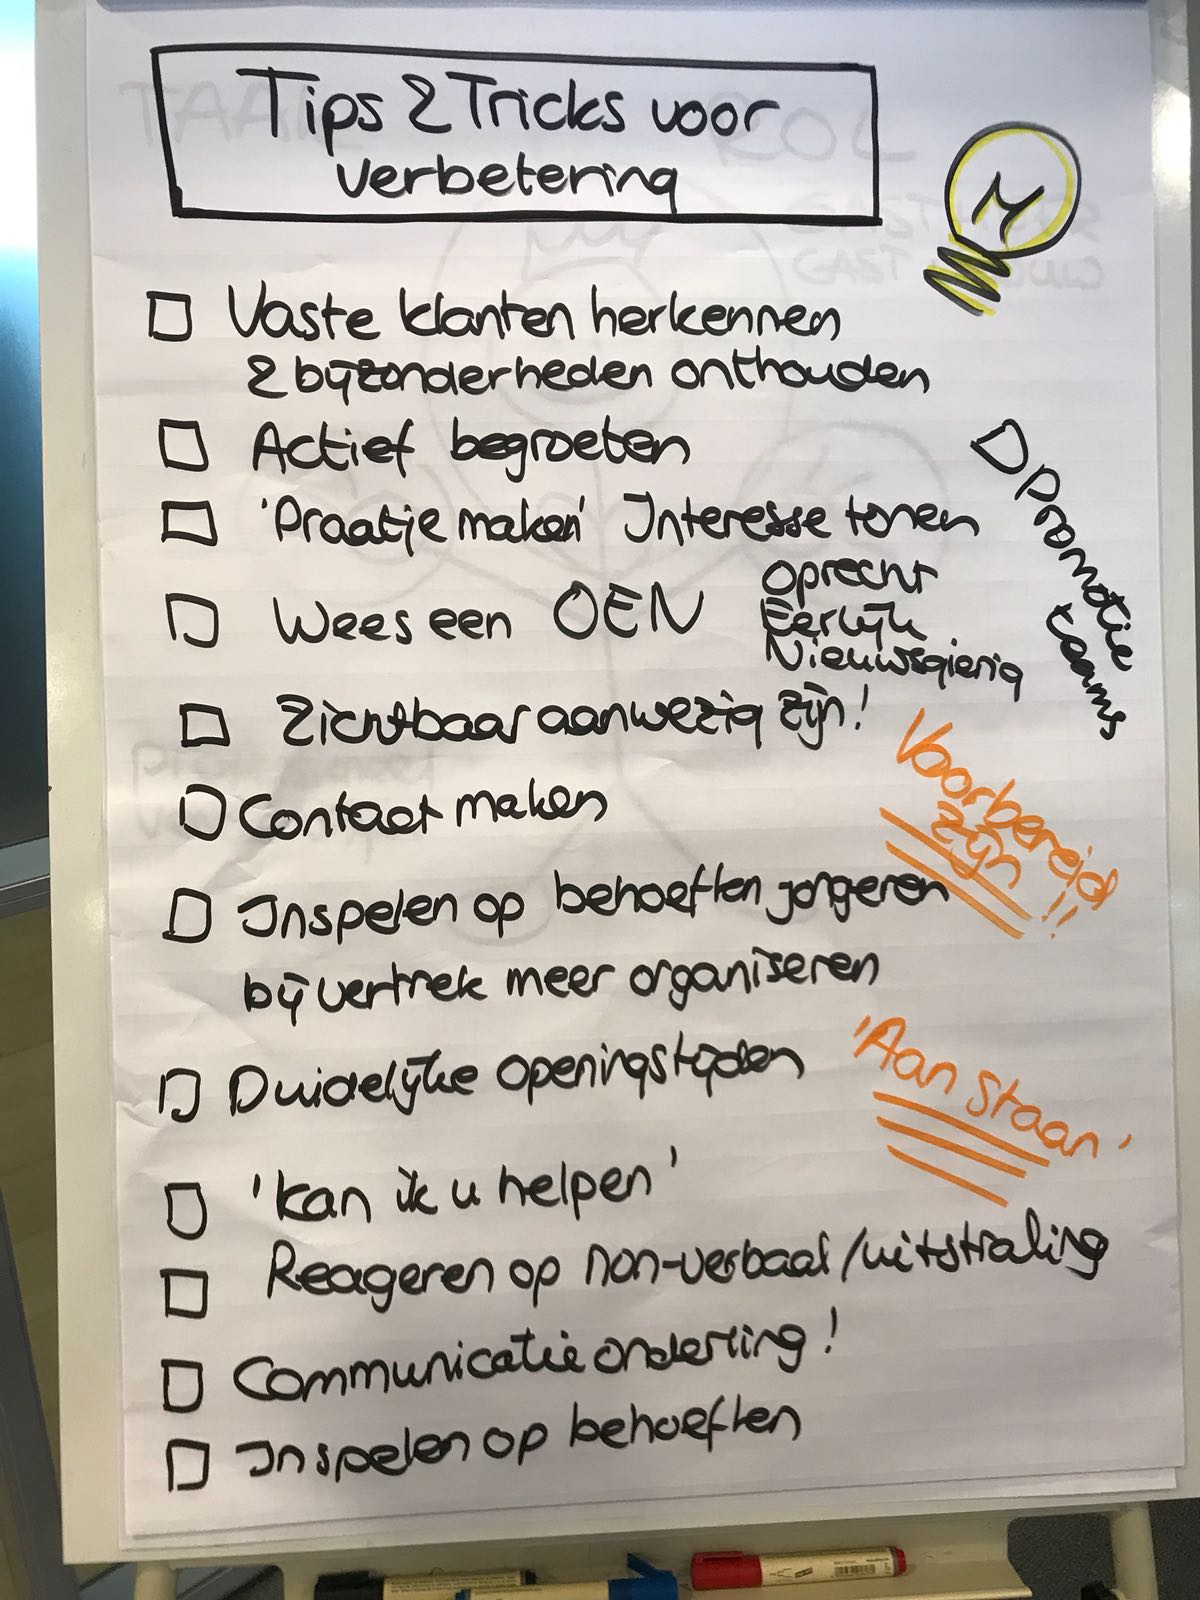 Tips & Tricks voor
verbetering
Vaste klanten herkennen
& bijzonderheden onthouden
Actief begroeten
'Praatje maken' Interesse tonen
Wees een OEN
Oprecht
Eerlijk
Nieuwsgierig
Zichtbaar aanwezig zijn!
Contact maken
Inspelen op behoeften jongeren
bij vertrek meer organiseren
Duidelijke openingstijden
'Kan ik u helpen'
Reageren op non-verbaal/uitstraling
Communicatie onderling!
Inspelen op behoeften
Promotie
teams
Voorbereid
zijn !!
'Aan staan'